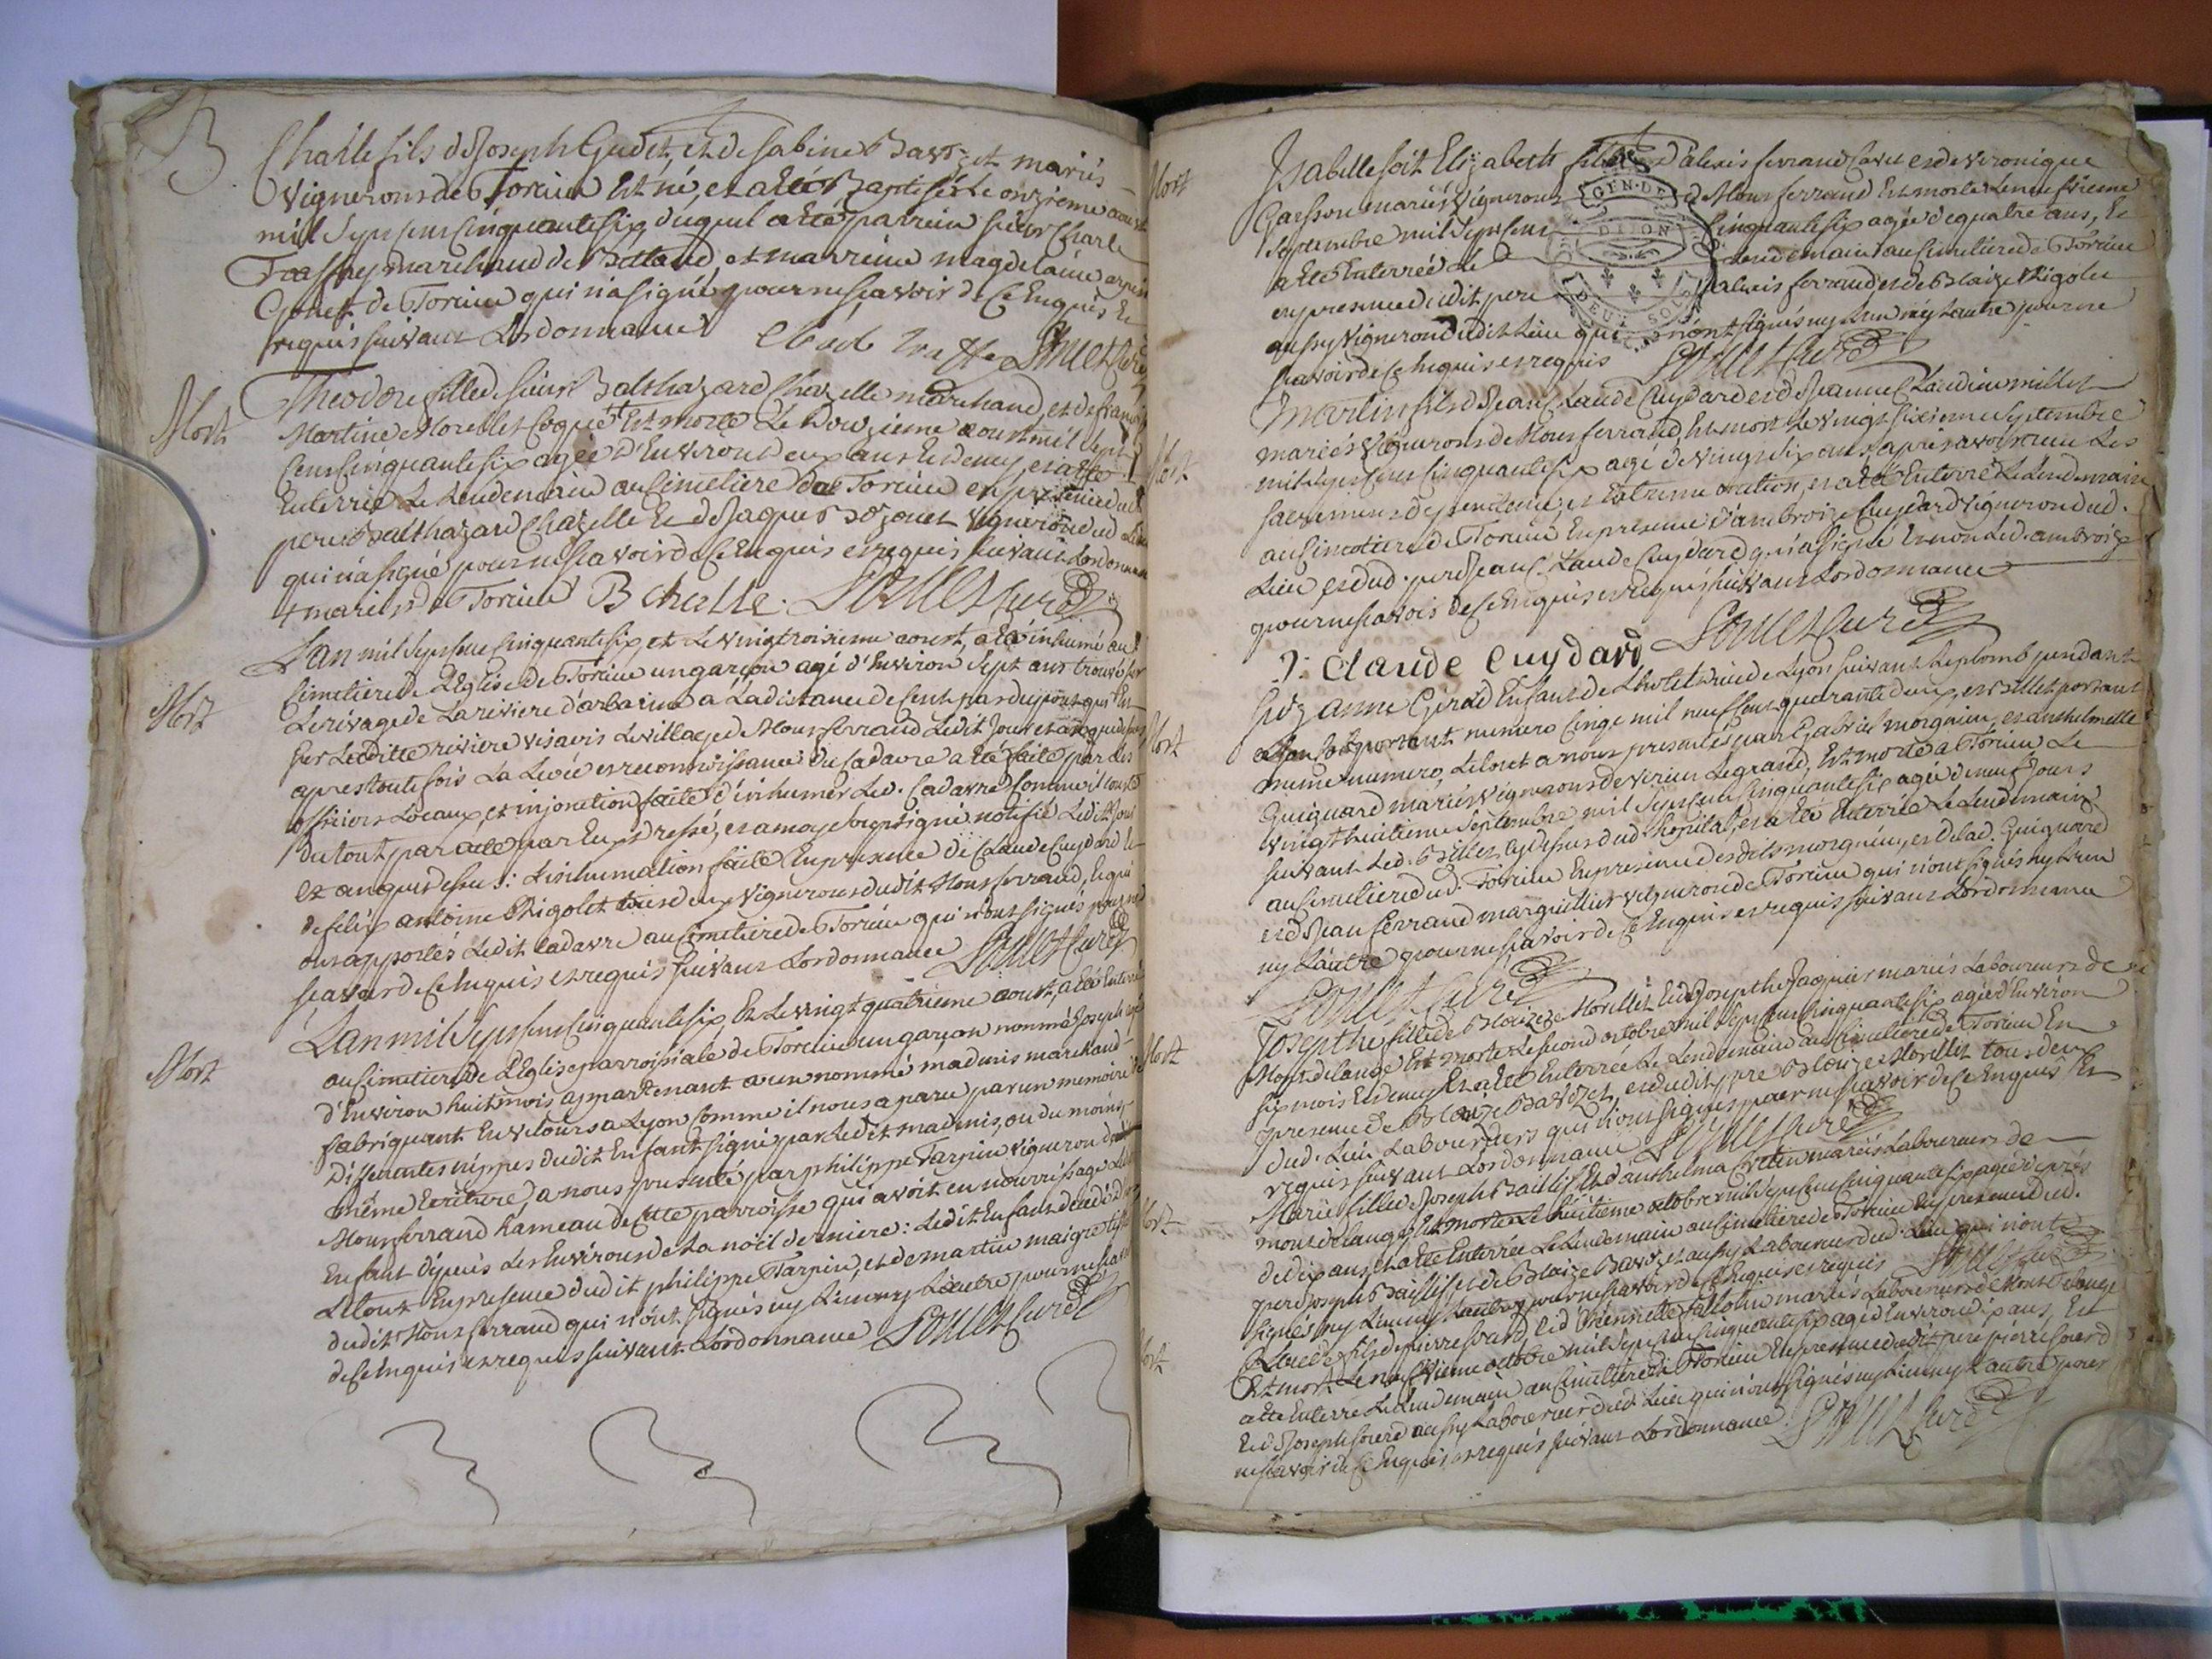 B
Charle fils de Joseph Gudet, et de Sabine Bavozet mariés
Vignerons de Torcieu Est né, et a été Baptisé le onzieme aoust
mil Sept cens Cinquante six, duquel a été parrein sieur Charle
Traffey marchand de Bettand, et marreine magdelaine
de Torcieu qui n'a signé pour ne sçavoir de ce Enquis Et
requis suivant Lordonnance
Mort
Theodore fille de sieur Balthazard Chazelle marchand, et de
Martine Morellet Coquet Est morte Le Douzieme aoust mil sept
Cens Cinquante six agée d'Environ deux ans Et demy, et a été
Enterrée Le Lendemain au Cimetiere de Torcieu en presence dudit
pere Balthazard Chazelle Et de Jaque Bozonet Vigneron dud Lieu
qui n'a signé pour ne sçavoir de ce Enquis et requis suivant Lordonnance
+ mariés de Torcieu B chazelle
Mort
L'an mil Sept cens Cinquante six, et Le vingt troisieme aoust, a été inhumé au
Cimetiere de L'Eglise de Torcieu un garçon agé d'Environ Sept ans trouvé sur
Le rivage de La riviere d'arbarine a La distance de Cent pas du pont qui Est
sur Laditte riviere vis a vis Le village de Montferrand Ledit Jour
apres toutefois La Levée et reconnoissance du Cadavre a été faite par Les
officiers Locaux, et injonction faite d'inhumer Led. Cadavre Comme il Conste
du tout par acte par Eux dressé, et a moy soussigné notifié Ledit Jour
Et an que dessus: L'inhumation faite En presence de Claude Cuydard Et
de felix antoine Rigolet tous deux Vignerons dudit Montferrand, Et qui
ont apportés Ledit cadavre au Cimetiere de Torcieu qui n'ont signés pour ne
sçavoir de ce Enquis et requis suivant Lordonnance
Mort
L'an mil Sept cens Cinquante six, Et Le vingt quatrieme aoust, a été Enterré
au Cimetiere de L'Eglise parroissiale de Torcieu un garçon nommé Joseph agé
d'Environ huit mois appartenant a un nommé madinis marchand
fabriquant En velours a Lyon Comme il nous a paru par un memoire de
Differentes nippes dudit Enfant signé par Ledit madinis, ou du moins
même Ecriture, a nous presenté par philippe Tarpin vigneron de
Montferrand hameau de cette parroisse qui avoit en nourrissage Ledit
Enfant depuis Les Environs de La noël derniere: Ledit Enfant decedé
Le tout En presence dudit philippe Tarpin, et de martin maigre
dudit Montferrand qui n'ont signés ny L'un ny L'autre pour ne sçavoir
de ce Enquis et requis suivant Lordonnance
Mort
Isabelle soit Elizabeth fille d'alexis ferrand et de Veronique
Garsson mariés Vignerons de Montferrand Est morte Le neufvieme
Septembre mil Sept cens Cinquante six agée de quatre ans, Et
a été Enterrée Le Lendemain au Cimetiere de Torcieu
en presence dudit pere alexis ferrand et de Blaize Rigolet
aussy Vigneron dudit Lieu qui n'ont signés ny L'un ny L'autre pour ne
sçavoir de ce Enquis et requis
GEN. DE DIJON
DEUX SOLS
Mort
Martin fils de Jean Claude Cuydard et de Jeanne Claudine millet
mariés Vignerons de Montferrand, Est mort Le vingt sixieme Septembre
mil Sept cens Cinquante six agé de vingt six ans apres avoir receu Les
sacremens de penitence, et Extreme onction, et a été Enterré Le Lendemain
au Cimetiere de Torcieu En presence d'ambroize Cuydard Vigneron dud.
Lieu et dud. pere Jean Claude Cuydard qui a signé Et non Led. ambroize
pour ne sçavoir de ce Enquis et requis suivant Lordonnance
J: Claude Cuydard
Mort
Suzanne Girod Enfant de L'hotel dieu de Lyon suivant Le plomb pendant
a son Col portant numero Cinq mil neuf Cent quarante deux, et billet portant
même numero, Le tout a nous presentés par Gabriel morgnieu, et anthelmette
Guiguard mariés Vignerons de Verieu Le grand, Est morte a Torcieu Le
vingt huitieme Septembre mil Sept cens Cinquante six agée de neuf Jours
suivant Led. Billet cy dessus dud. hopital, et a été Enterrée Le Lendemain
au Cimetiere dud. Torcieu En presence desdits morgnieu, et de lad. Guiguard
et de Jean ferrand marguillier vigneron de Torcieu qui n'ont signés ny L'un
ny L'autre pour ne sçavoir de ce Enquis et requis suivant Lordonnance
Mort
Josepthe fille de Blaize Morellet Et de Josepthe Jaquier mariés Laboureurs de
Mont de lange Est morte Le second octobre mil Sept cens Cinquante six agée d'Environ
six mois Et demy, Et a été Enterrée Le Lendemain au Cimetiere de Torcieu En
presence de Blaize Bavozet, et dudit pere Blaize Morellet tous deux
dud. Lieu Laboureurs qui n'ont signés pour ne sçavoir de ce Enquis Et
requis suivant Lordonnance
Mort
Marie fille de Joseph Baillif Et d'anthelma mariés Laboureurs de
mont de lange, Est morte Le huitieme octobre mil Sept cens Cinquante six agée de prés
de dix ans, Et a été Enterrée Le Lendemain au Cimetiere de Torcieu En presence dud.
pere Joseph Baillif et de Blaize Bavozet aussy Laboureur dud. Lieu qui n'ont
signés ny L'un ny L'autre pour ne sçavoir de ce Enquis et requis
Mort
Claude fils de pierre Suard, Et d'henriette mariés Laboureurs de Mont de lange
Est mort Le neufvieme octobre mil Sept cens Cinquante six agé d'Environ dix ans, Et
a été Enterré Le Lendemain au Cimetiere de Torcieu En presence dudit pere pierre Suard
Et de Joseph Suard aussy Laboureur dud. Lieu qui n'ont signés ny L'un ny L'autre pour
ne sçavoir de ce Enquis et requis suivant Lordonnance